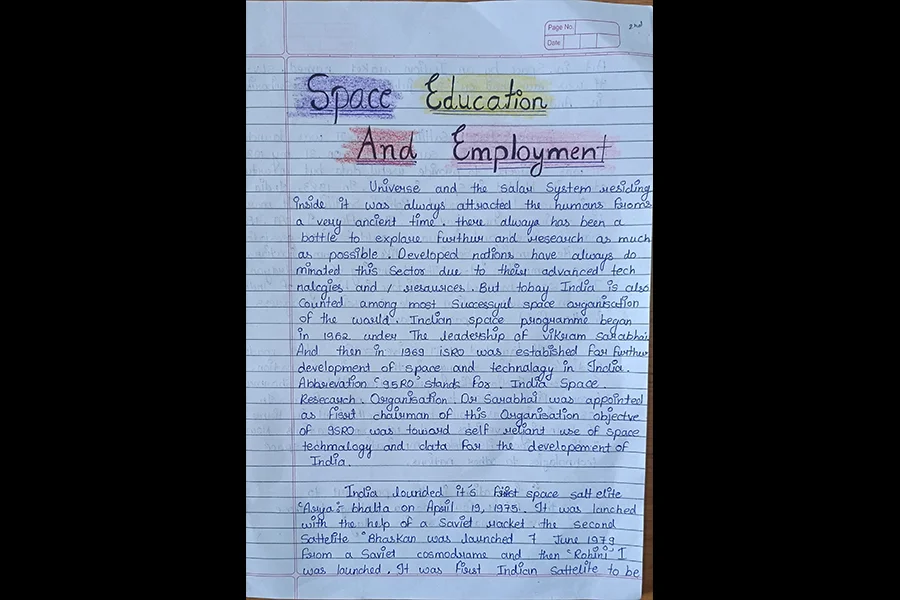 Page No.
2nd
Date
Space Education
And Employment
Universe and the salar System residing
inside it was always attracted the humans froms
a very ancient time. there always has been a
battle to explare further and research as much
as possible. Developed nations have always do
minated this Sector due to their advanced tech
nalogies and / resaurces. But tobay India is also
Counted among most Successyul space organisation
of the warld. Indian space programme began
in 1962 under The leadership of vikram Sarabhai
And then in 1969 iSRO was estabished for further
development of space and technalagy in India.
Abbrievation "9SRO" stands for. India Space.
Resecarch. Organisation. Dr Sarabhai was appointed
as first chairman of this Organisation objectve
of 9SRO was toward self reliant use of space
techmalogy and data for the developement of
India.
India lounded it's first space satt elite
"Arya" bhalta on April 19, 1975. It was lanched
with the help of a Saviet racket. the second
Sattelite "Bhaskan was launched 7 June 1979
from a Saviet cosmodrame and then "Rohini" I
was launched. It was first Indian Sattelite to be